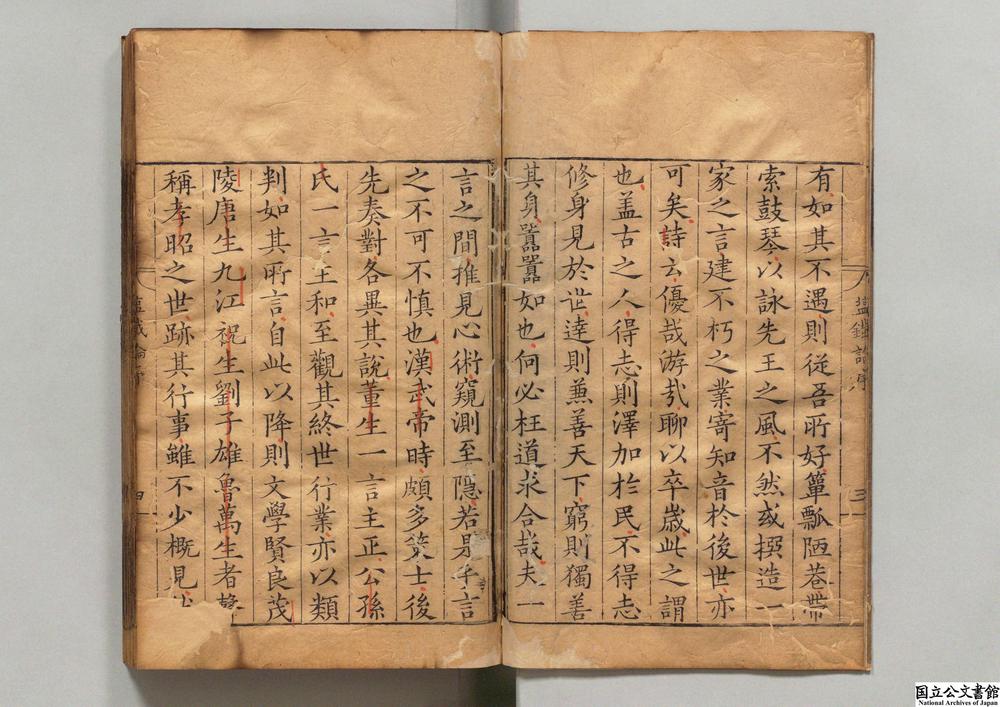 有如其不遇則從吾所好簞瓢陋巷帶
索鼓琴以詠先王之風不然或撰造一
家之言建不朽之業寄知音於後世亦
可矣詩云優哉游哉聊以卒歲此之謂
也盖古之人得志則澤加於民不得志
修身見於世達則兼善天下窮則獨善
其身囂囂如也何必枉道求合哉夫一
言之間推見心術窺測至隱若是乎言
之不可不慎也漢武帝時頗多策士後
先奏對各異其說董生一言主正公孫
氏一言主和至觀其終世行業亦以類
判如其所言自此以降則文學賢良茂
陵唐生九江祝生劉子雄魯萬生者
稱孝昭之世跡其行事雖不少概見
鹽鐵論序
三
鹽鐵論序
四
国立公文書館
National Archives of Japan